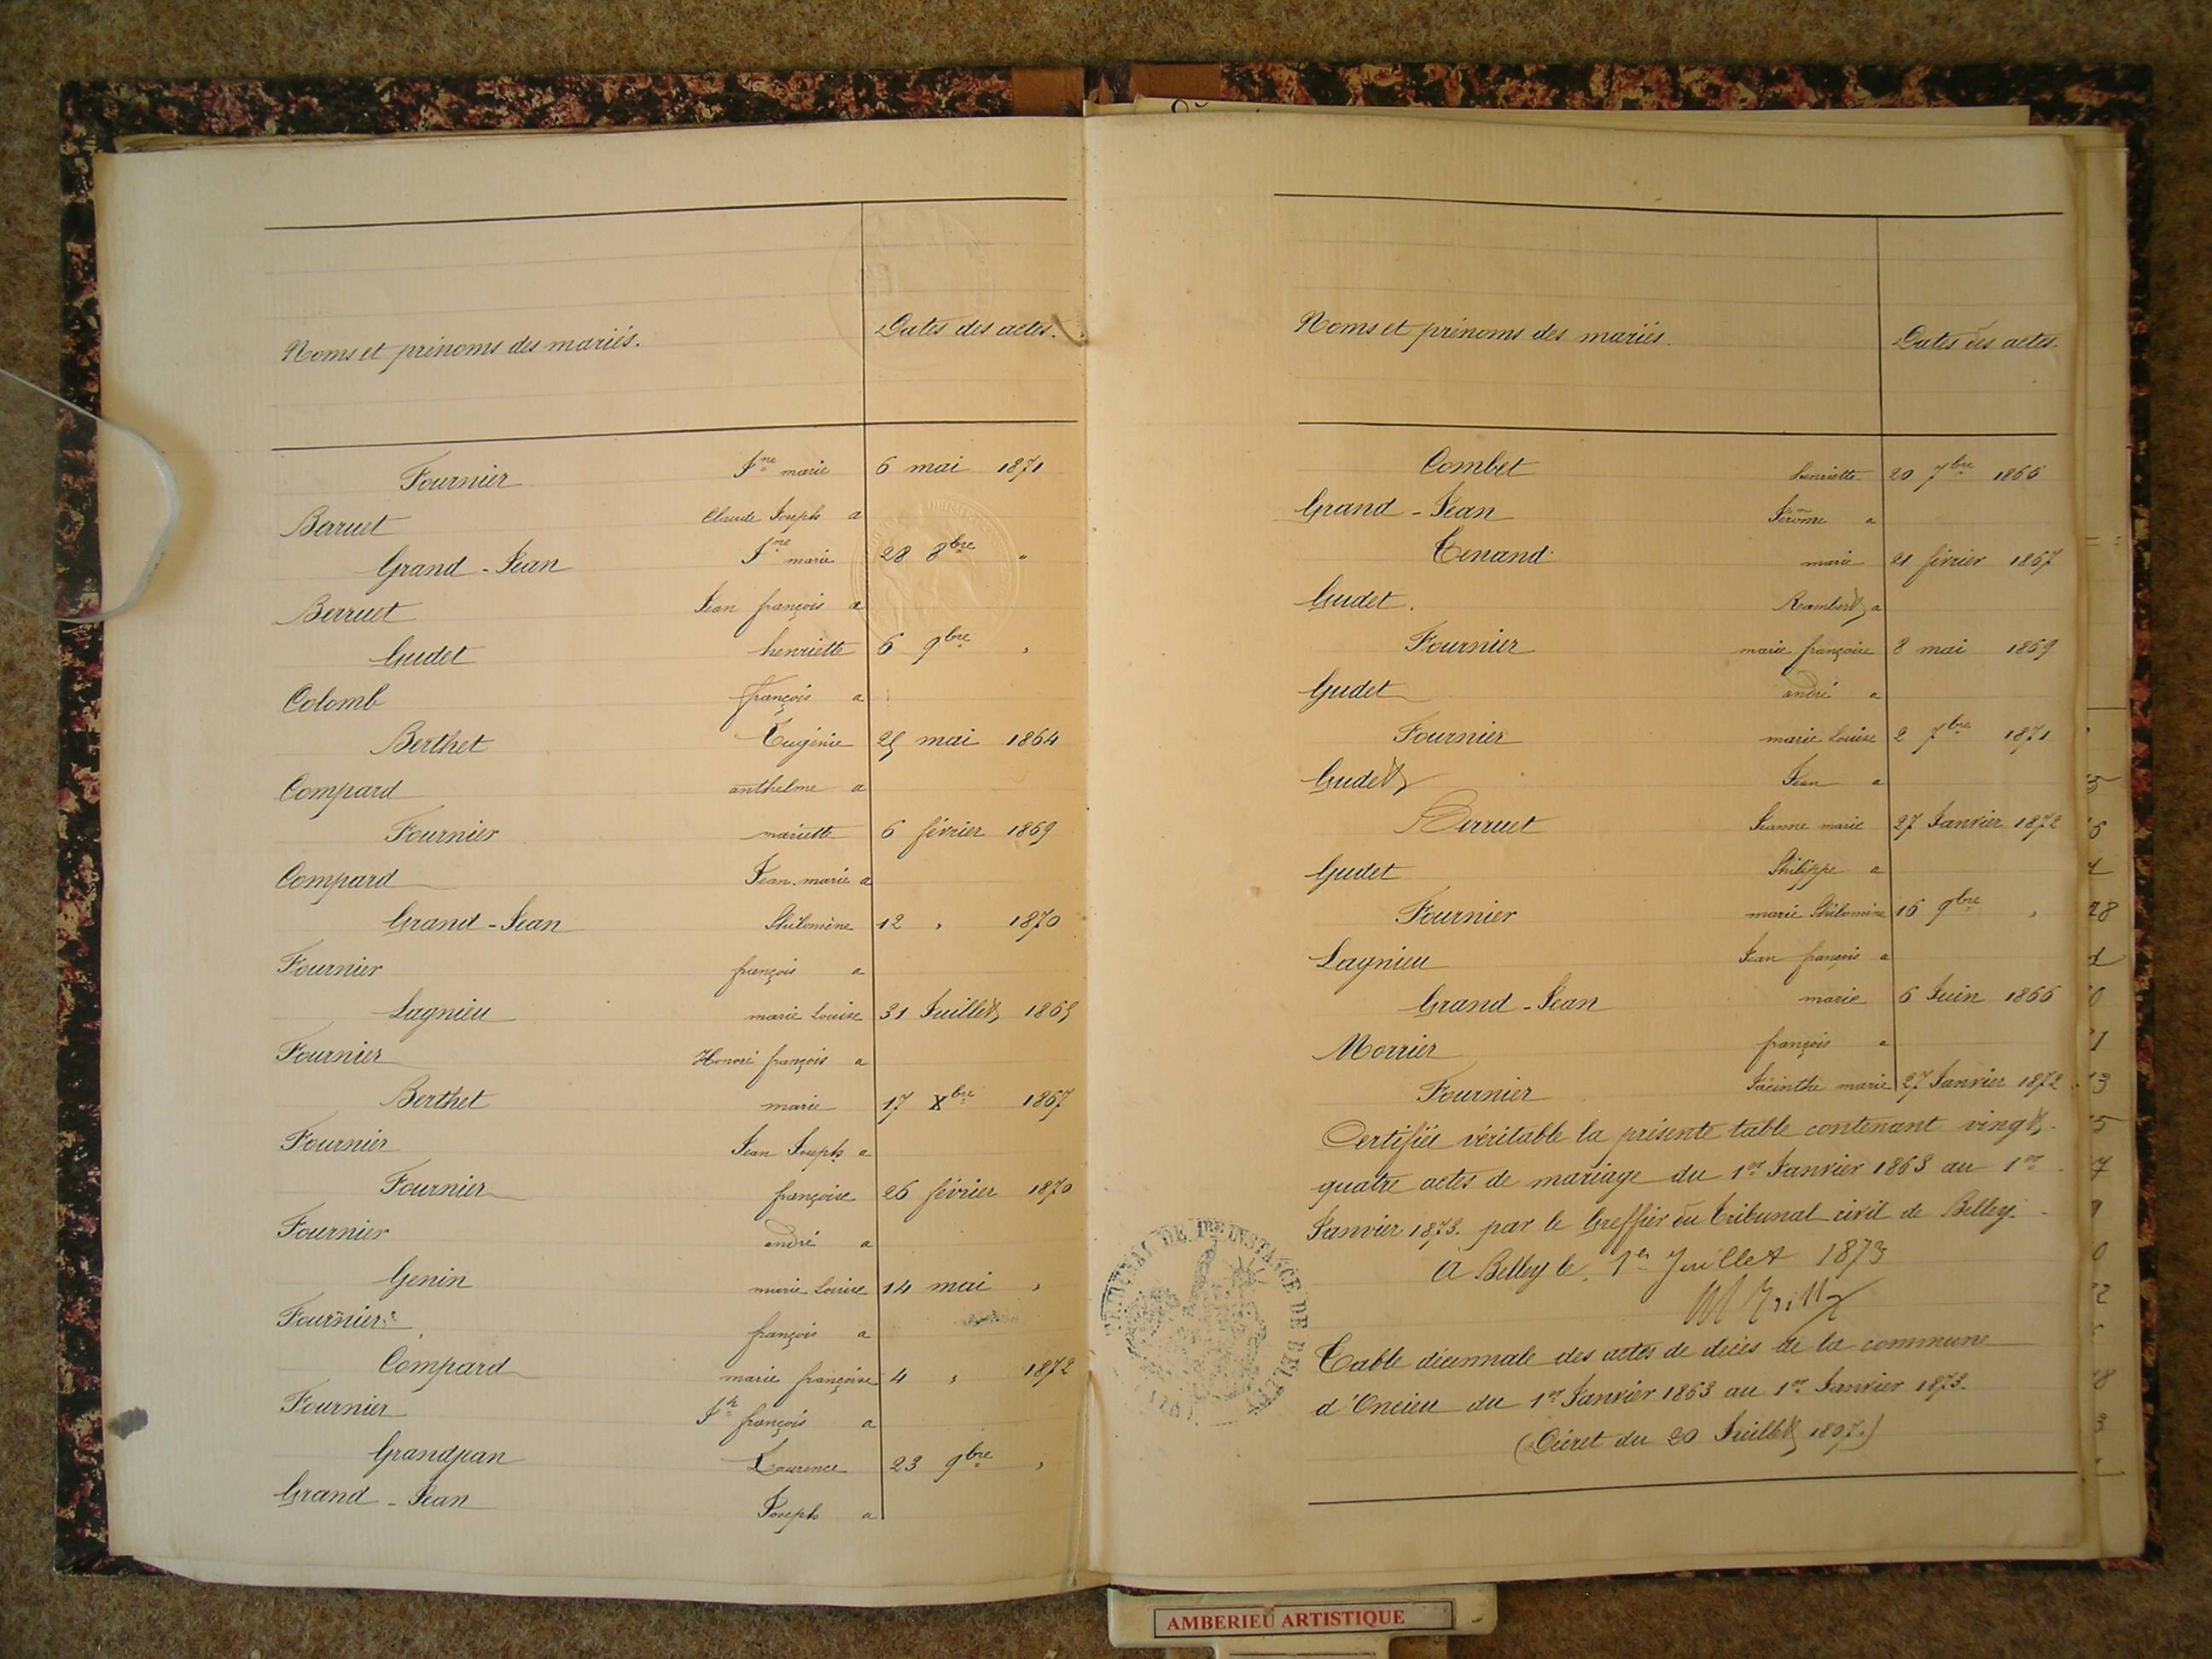 Noms et prénoms des mariés. Dates des actes.
Fournier Jne marie 6 mai 1871
Berruet Claude Joseph a
Grand-Jean Jne marie 28 8bre "
Berruet Jean françois a
Gudet henriette 6 9bre "
Colomb françois a
Berthet Eugénie 25 mai 1864
Compard anthelme a
Fournier mariette 6 février 1869
Compard Jean-marie a
Grand-Jean Philomène 12 " 1870
Fournier françois a
Lagnieu marie Louise 31 Juillet 1865
Fournier Honoré françois a
Berthet marie 17 Xbre 1867
Fournier Jean Joseph a
Fournier françoise 26 février 1870
Fournier andré a
Genin marie Louise 14 mai "
Fournier françois a
Compard marie françoise 4 " 1872
Fournier Jh françois a
Grandjean Laurence 23 9bre "
Grand-Jean Joseph a
Noms et prénoms des mariés. Dates des actes.
Combet henriette 20 7bre 1866
Grand-Jean Jérôme a
Tenand marie 21 février 1867
Gudet. Rambert a
Fournier marie françoise 8 mai 1869
Gudet andré a
Fournier marie Louise 2 7bre 1871
Gudet Jean a
Berruet Jeanne marie 27 Janvier 1872
Gudet Philippe a
Fournier marie Philomène 16 9bre "
Lagnieu Jean françois a
Grand-Jean marie 6 Juin 1866
Morrier françois a
Fournier Jacinthe marie 27 Janvier 1872
Certifiée véritable la présente table contenant vingt-
quatre actes de mariage du 1er Janvier 1863 au 1er
Janvier 1873. par le Greffier du Tribunal civil de Belley.
A Belley le 1er Juillet 1873
Table décennale des actes de décès de la commune
d'Oncieu du 1er Janvier 1863 au 1er Janvier 1873.
(Décret du 20 Juillet 1807.)
TRIBUNAL DE 1RE INSTANCE DE BELLEY
AMBERIEU ARTISTIQUE